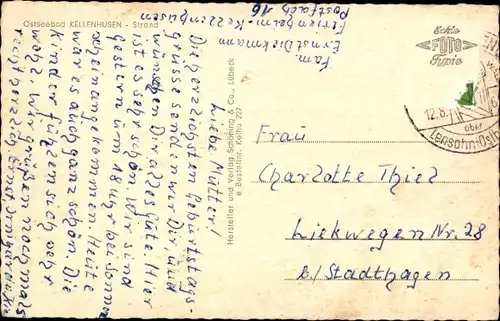 Ostseebad KELLENHUSEN - Strand
Fam.
Ernst Diekmann
Ferienheim-Kellenhusen
Postfach 16
Liebe Mutter!
Die herzlichsten Geburtstags-
grüsse senden wir Dir und
wünschen Dir alles Gute. Hier
ist es sehr schön. Wir sind
gestern um 18 Uhr bei Sonnen
schein angekommen. Heute
war es auch ganz schön. Die
Kinder fühlen sich sehr
wohl. Wir grüßen nochmals
recht herzlich Ernst
Hersteller und Verlag Schöning & Co., Lübeck
Bestellnr. Kelhu 227
Echte
FOTO
Typie
12.8.
über
Lensahn
Frau
Charlotte Thiel
Liekwegen Nr. 28
b./Stadthagen